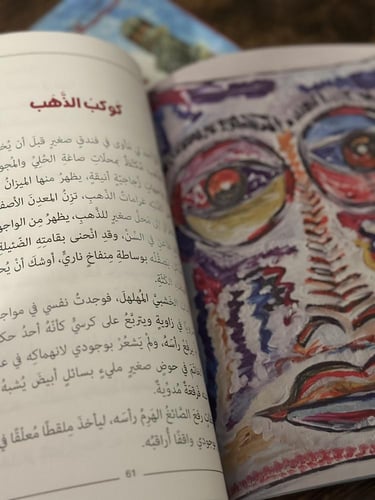 كوكب الذَّهَب
نتُ آوي في فندقٍ صغيرٍ قبلَ أن
بمحلّات صاغة الحُليّ والمُجو
زجاجيّة أنيقة، يظهرُ منها الميزانُ
غراماتُ الذّهبِ، تزنُ المعدنَ الأصف
محلٍّ صغيرٍ للذّهبِ، يظهرُ من الواجه
في السّنّ، وقدِ انحنى بقامتِهِ الضّئيلة
بوساطةِ مِنفاخٍ ناريٍّ، أوشكَ أنْ
الكتلة.
الخشبيَّ المُهلهلَ، فوجدتُ نفسي في مواجه
في زاويةٍ ويتربَّعُ على كرسيٍّ كأنّهُ أحدُ حك
يرفعْ رأسَهُ، ولمْ يَشعُرْ بوجودي لانهماكِهِ في
في حوضٍ صغيرٍ مليءٍ بسائلٍ أبيضَ يُشبهُ
فرقعةً مُدوّيةً.
رفعَ الصّائغُ الهَرِمُ رأسَه، ليأخذَ مِلقطًا مُعلّقًا في
وجودي واقفًا أُراقبُه.
61